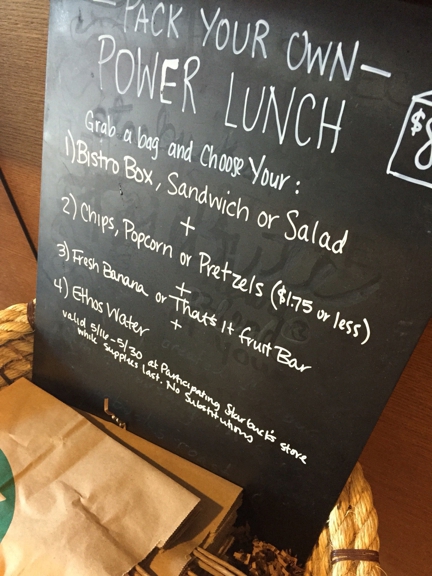 — PACK YOUR OWN —
POWER LUNCH
$8
Grab a bag and Choose Your:
1) Bistro Box, Sandwich or Salad
+
2) Chips, Popcorn or Pretzels ($1.75 or less)
+
3) Fresh Banana or That's it fruit Bar
+
4) Ethos Water
valid 5/16-5/30 at Participating Starbucks store
while supplies last. No Substitutions